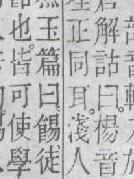 解詁曰。楊音
正同耳。淺人
玉篇曰。餳徒
也。皆可使學